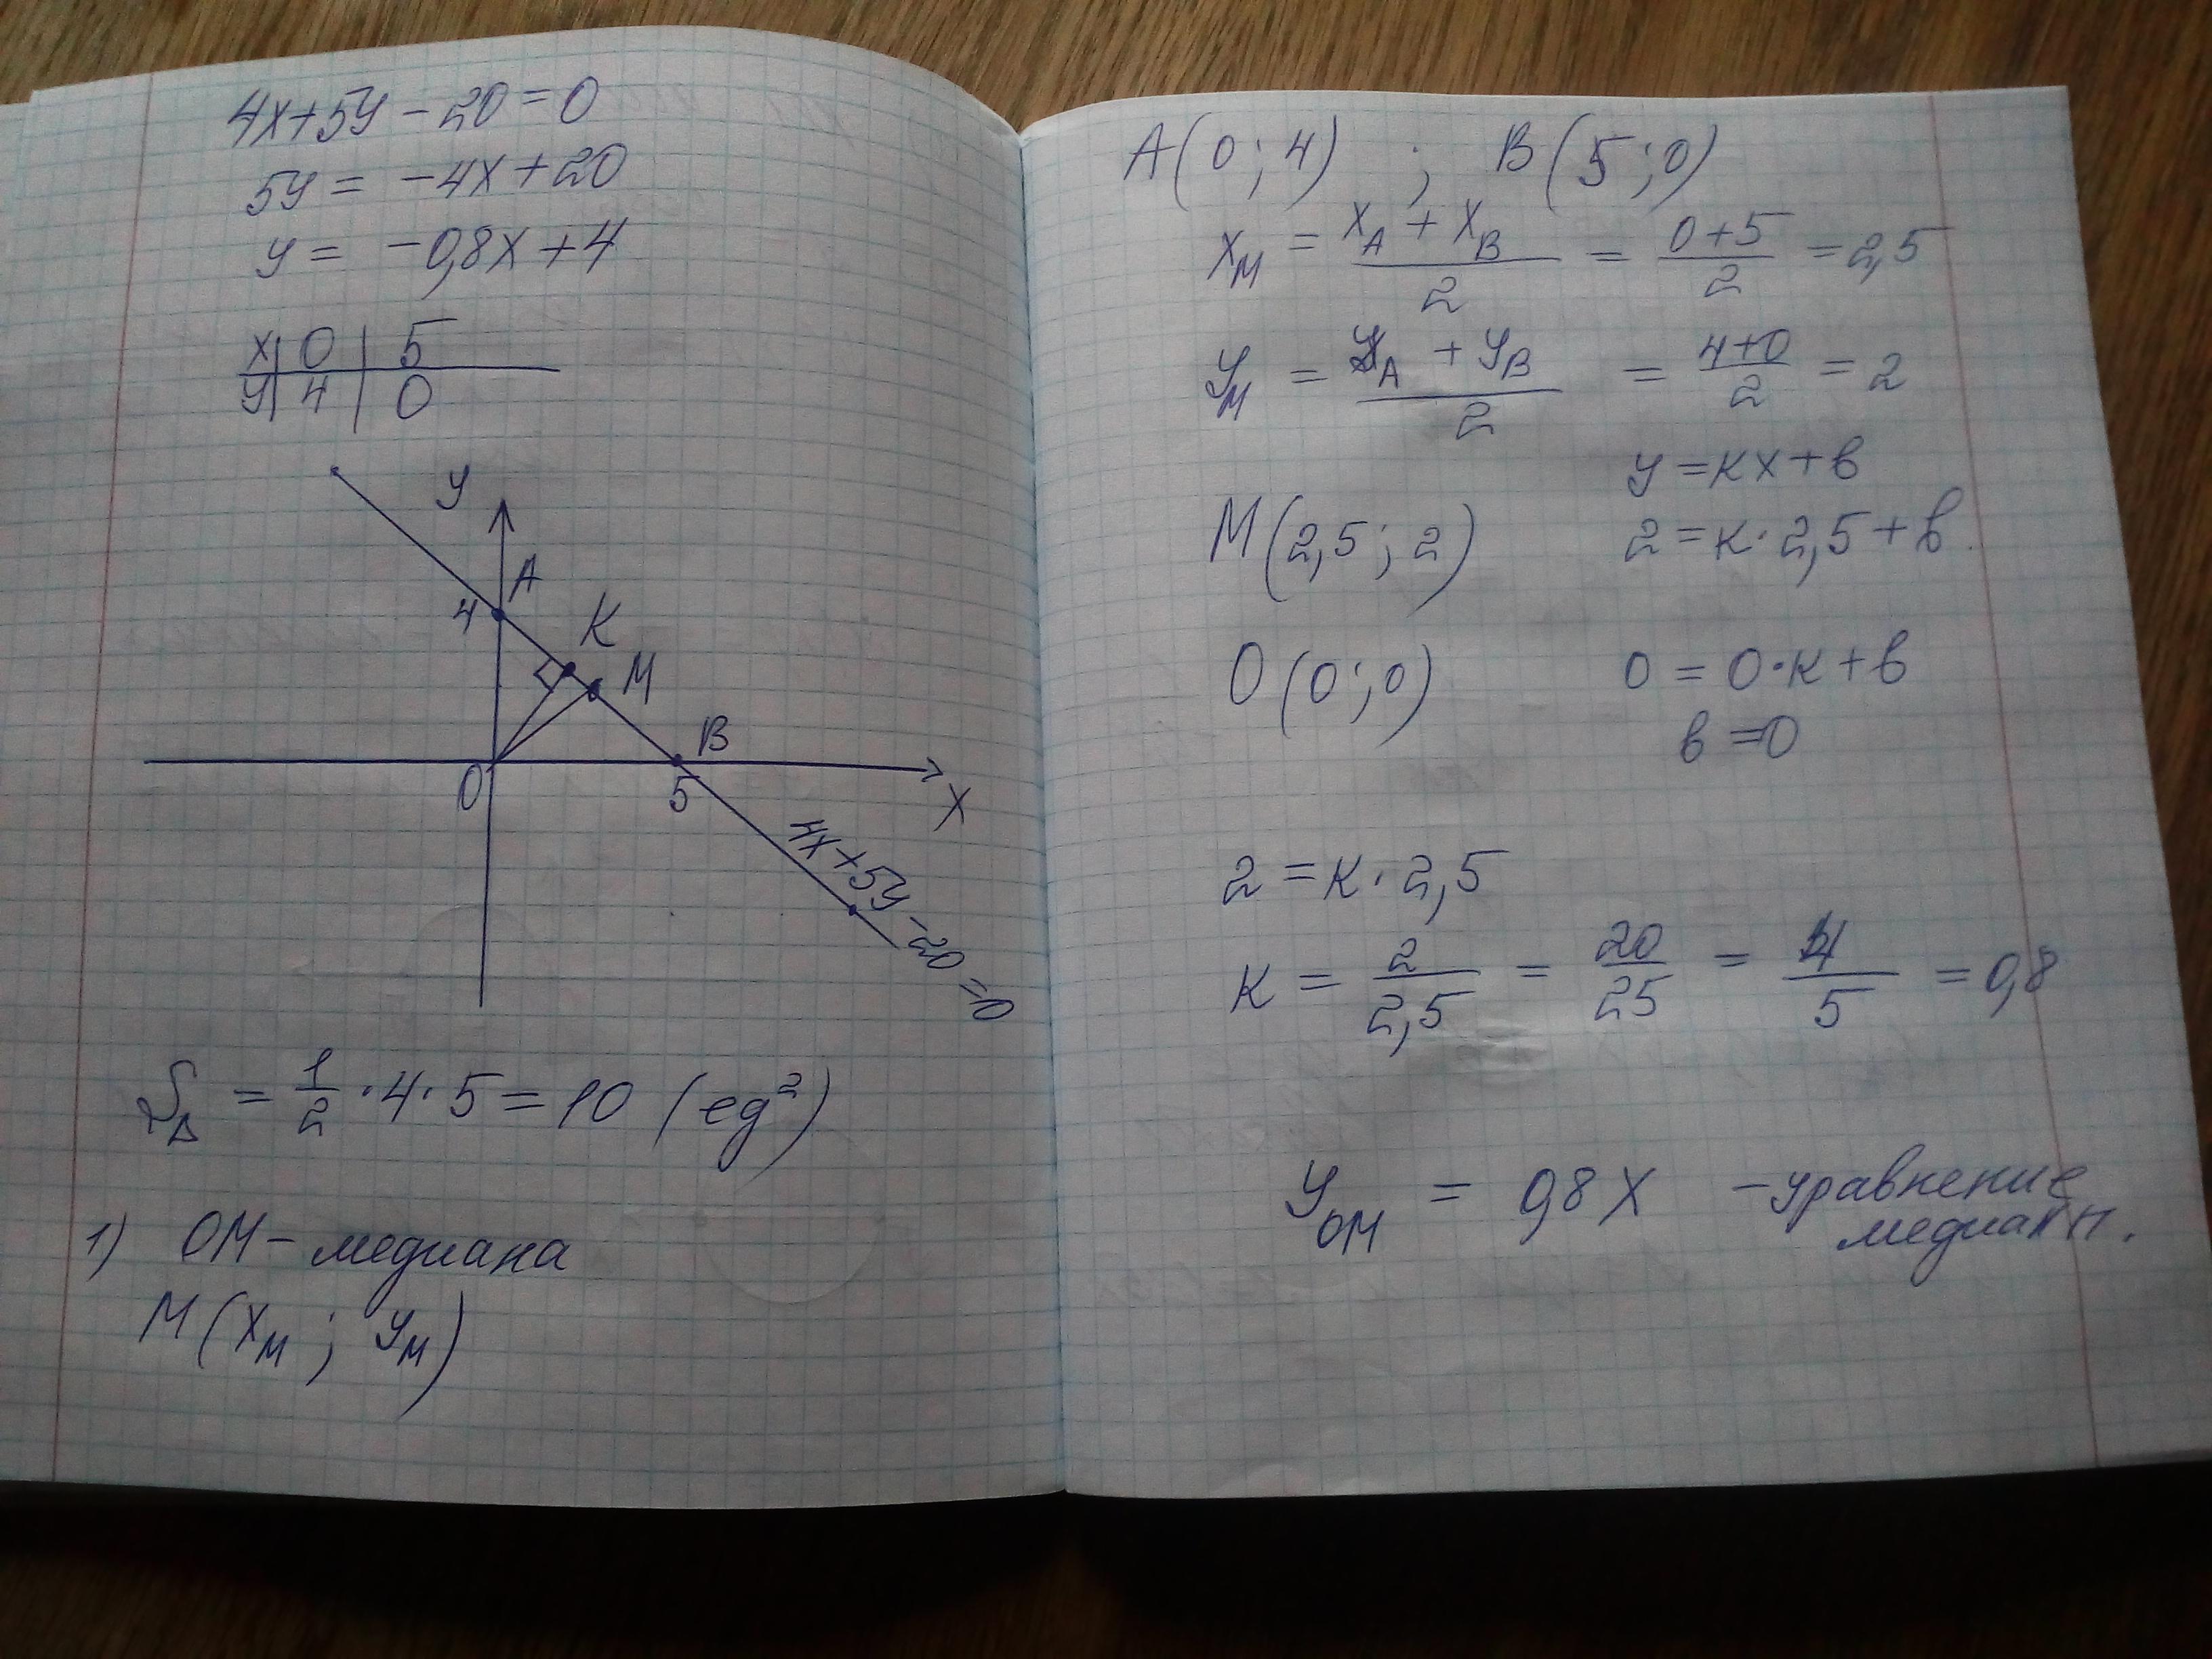 4x+5y-20=0
5y = -4x+20
y = -0,8x+4
x | 0 | 5
y | 4 | 0
y
A
4
K
M
B
0
5
x
4x+5y-20=0
S△ = 1/2 · 4 · 5 = 10 (ед²)
1) OM - медиана
M(x_M ; y_M)
A(0;4) ; B(5;0)
x_M = (x_A + x_B)/2 = (0+5)/2 = 2,5
y_M = (y_A + y_B)/2 = (4+0)/2 = 2
y = кx+в
M(2,5 ; 2) 2 = к·2,5+в
O(0;0) 0 = 0·к+в
в=0
2 = к·2,5
к = 2/2,5 = 20/25 = 4/5 = 0,8
y_OM = 0,8x - уравнение
медианы.